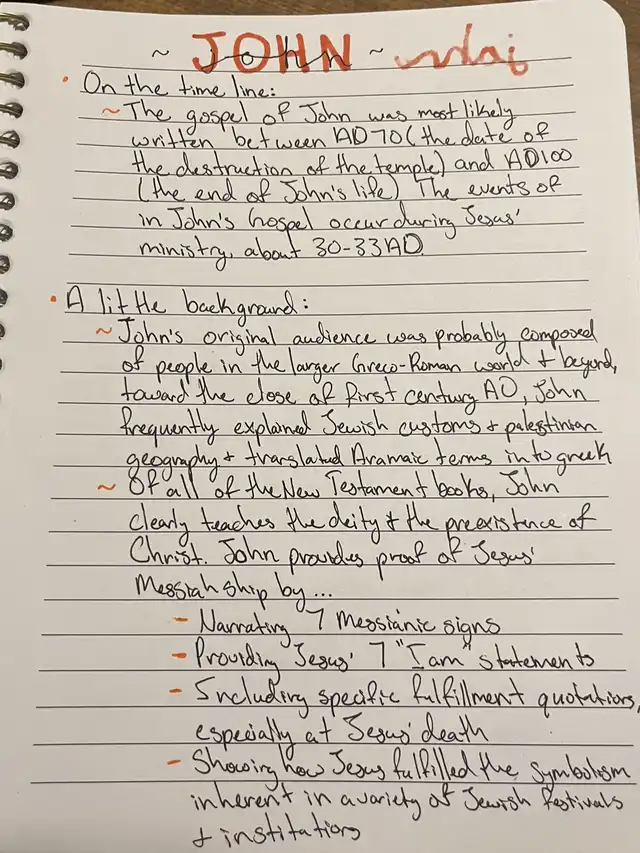 ~ JOHN ~
• On the time line:
~ The gospel of John was most likely
written between AD 70 (the date of
the destruction of the temple) and AD100
(the end of John's life) The events of
in John's Gospel occur during Jesus'
ministry, about 30-33AD.
• A little background:
~ John's original audience was probably composed
of people in the larger Greco-Roman world & beyond,
toward the close of first century AD, John
frequently explained Jewish customs & palestinian
geography & translated Aramaic terms into greek
~ Of all of the New Testament books, John
clearly teaches the deity & the preexistence of
Christ. John provides proof of Jesus'
Messiahship by...
- Narrating 7 Messianic signs
- Providing Jesus' 7 "I am" statements
- Including specific fulfillment quotations,
especially at Jesus' death
- Showing how Jesus fulfilled the symbolism
inherent in a variety of Jewish festivals
& institations